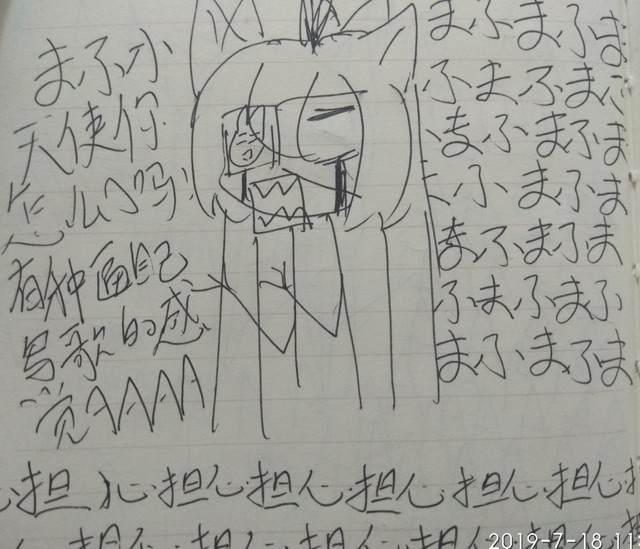 まふ小
天使你
怎么了吗
有种逼自己
写歌的感
觉AAAA
まふまふま
ふまふま
まふまふま
ふまふま
まふまふま
ふまふまふ
まふまふま
心担心担心担心担心担心担
2019-7-18 11